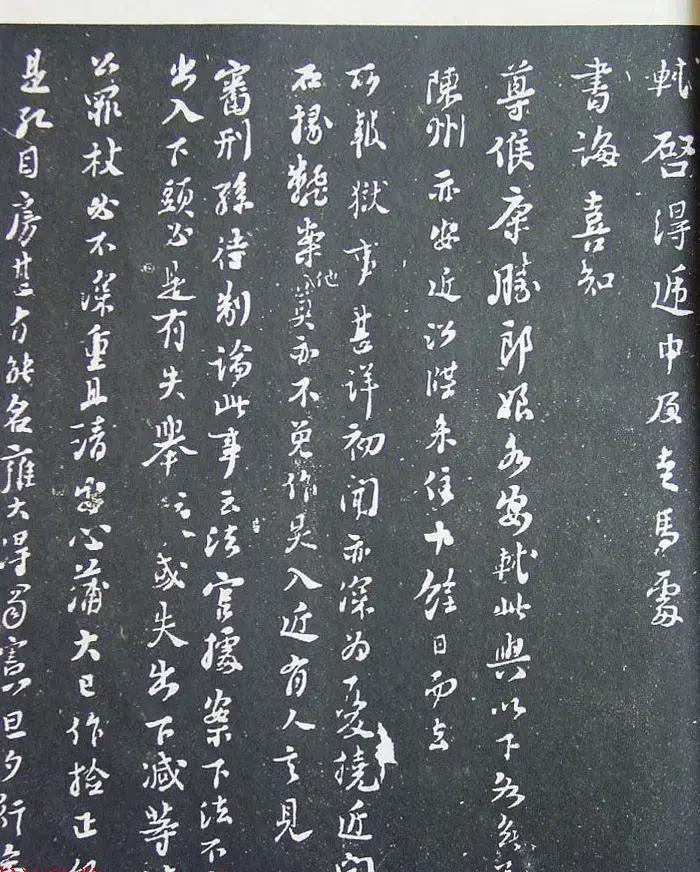 軾啓得递中及走馬處
書誨喜知
尊候康勝郎娘各安軾此與以下各無
陳州亦安近沿牒来住十餘日而去
所報獄事甚詳初聞亦深為憂撓近聞
石掾案他莫亦不免作吴入近有人言見
審刑孫待制論此事云法官據案下法不
出入下頭必是有失舉云云或失出下減等
公罪杖必不深重且請寬心蒲大已作捡正
是孔目房甚有能名雍大得蜀憲旦夕行